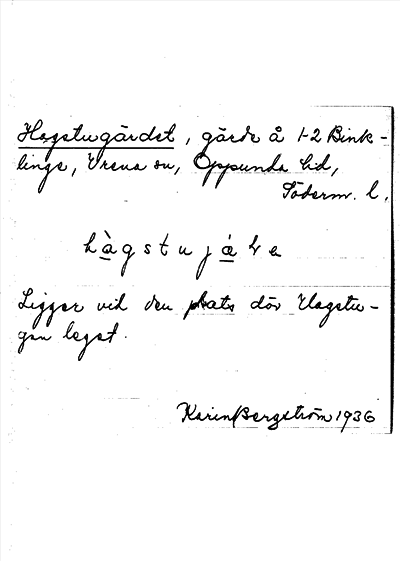 Hagstugärdet, gärde å 1-2 Bink-
linge, Vrena sn, Oppunda hd,
Söderm. l.
hàgstujáḷe
Ligger vid den plats där Hagstu-
gan legat.
Karin Bergström 1936